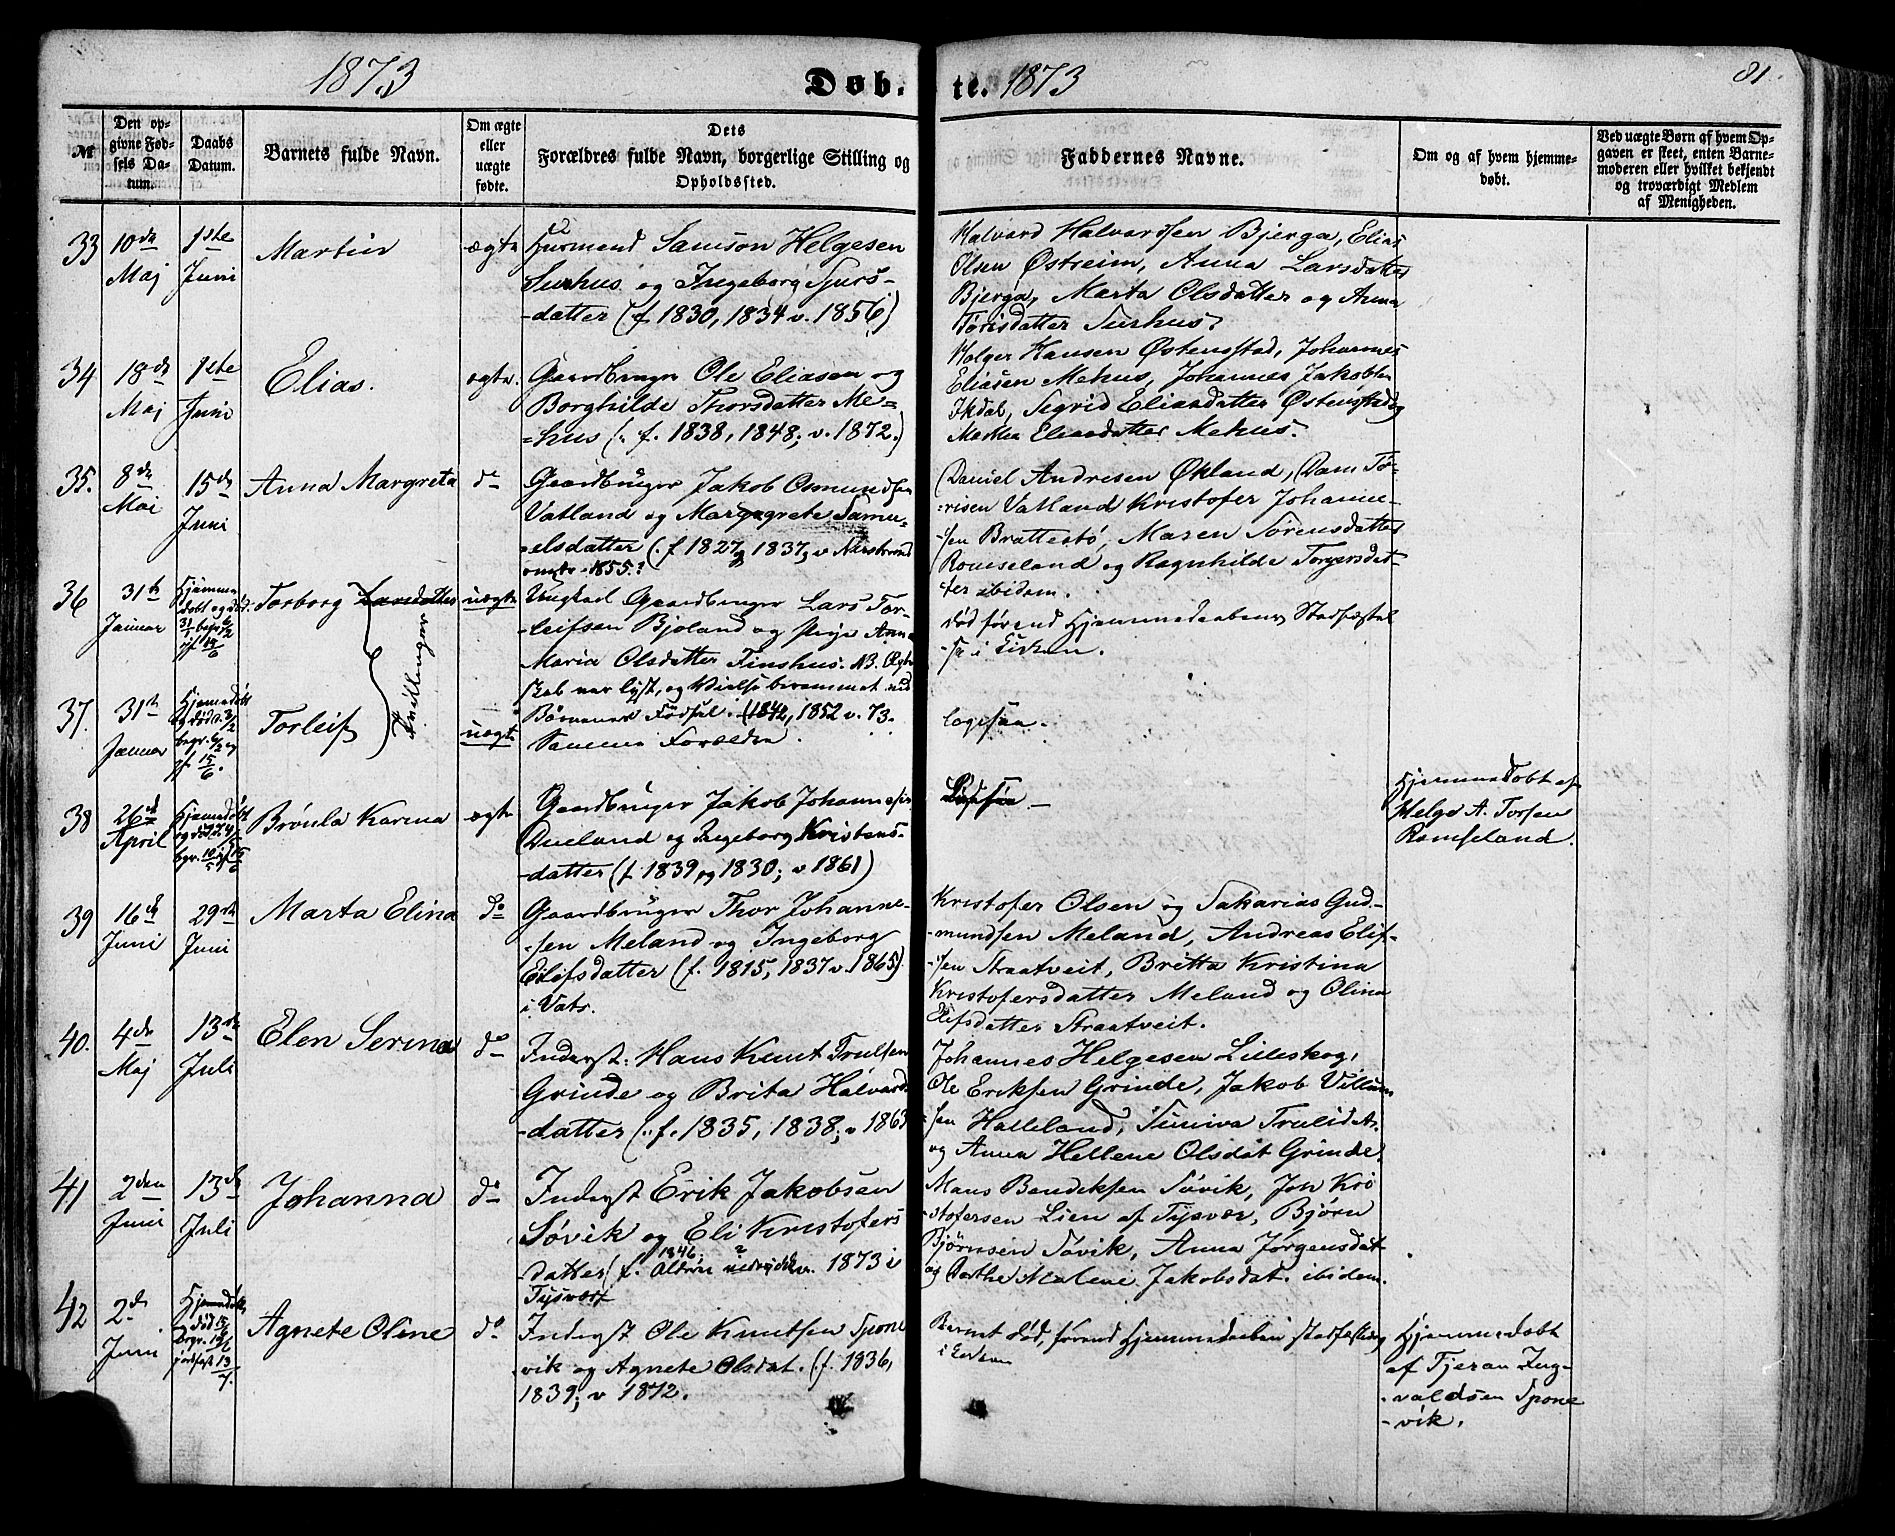 1873
Døb-
te. 1873
81.
№
Den opgivne Fødsels Datum.
Daabs Datum.
Barnets fulde Navn.
Om ægte eller uægte fødte.
Dets
Forældres fulde Navn, borgerlige Stilling og
Opholdssted.
Faddernes Navne.
Om og af hvem hjemmedøbt.
Ved uægte Børn af hvem Opgaven er skeet, enten Barnemoderen eller hvilket bekjendt og troværdigt Medlem af Menigheden.
33
10de Maj
1ste Juni
Martin
ægte
Husmand Samson Helgesen
og Ingeborg Sjurs-
-datter (f. 1830, 1834 v. 1856)
Halvard Halvardsen Bjerga, Elias
Olsen Østreim, Anna Larsdatter
Bjerga, Marta Olsdatter og Anna
34
18de Maj
1ste Juni
Elias.
ægte.
Gaardbruger Ole Eliasen og
Borghilde Thorsdatter Me-
-hus (f. 1838, 1848; v. 1872.)
Holger Hansen Østensstad, Johannes
Eliasen Mehus, Johannes Jakobsen
Ikdal, Segrid Eliasdatter Østensstad og
Eliasdatter Mehus.
35.
8de Mai
15de Juni
Anna Margreta
do
Gaardbruger Jakob Osmundsen
Vatland og Margrete Samu-
-elsdatter (f. 1827, 1837, v. Nerstrand
1855.)
Daniel Andresen Økland, Dam Tø-
-risen Vatland Kristofer Johanne-
-sen Brattestø, Maren Sørensdatter
Romseland og Ragnhilde Torgersdat-
ter ibidem.
36
31te Januar
Torborg Larsdatter
uægte
Ungkarl Gaardbruger Lars Tor-
-leifsen Bjoland og Pige Anna
Maria Olsdatter NB. Ægte-
skab var lyst, og Vielse berammet ved
Børnenes Fødsel. (1842, 1852 v. 73.
død førend Hjemmedaabens Stadfæstel-
-se i Kirken.
Tvillinger
37.
31te Januar
Torleif
uægte
Samme Forældre.
ligesaa.
38
26de April
Brønla Karina
ægte
Gaardbruger Jakob Johannesen
Dueland og Ingeborg Kristens-
-datter (f. 1839 og 1830; v 1861)
Hjemmedøbt af
Helge A. Torsen
Romseland.
39
16de Juni
29de Juni
Marta Elina
do
Gaardbruger Thor Johanne-
-sen Meland og Ingeborg
Eilifsdatter (f. 1815, 1837 v. 1865)
i Vats.
Kristofer Olsen og Sakarias Gud-
-mundsen Meland, Andreas Elif-
-sen Straatveit, Britta Kristina
Kristofersdatter Meland og Olina
Elifsdatter Straatveit.
40.
4de Maj
13de Juli
Elen Serina
do
Inderst: Hans Knut Trulsen
Grinde og Brita Halvards-
-datter (f. 1835, 1838; v 1863
Johannes Helgesen Lilleskog,
Ole Eriksen Grinde, Jakob Villum-
-sen Halleland, Suniva
og Anna Hellene Olsdat Grinde.
41
2den Juni
13de Juli
Johanna
do
Inderst Erik Jakobsen
Søvik og Eli Kristofers
-datter (f. 1846; 1873 i
Tysvær
Hans Bendiksen Søvik, Jon Kri-
-stofersen Lien af Tysvær, Bjørn
Bjørnsen Søvik, Anna Jørgensdat.
og Dorthe Malene Jakobsdat. ibidem.
42
2de Juni
Agnete Oline
do
Inderst Ole Knutsen Spone
vik og Agnete Olsdat. (f. 1836,
1839; v 1872.
Barnet død, førend Hjemmedaaben stadfæstedes
i Kirken
Hjemmedøbt
af Tjeran Ing-
-valdsen Spone
-vik.